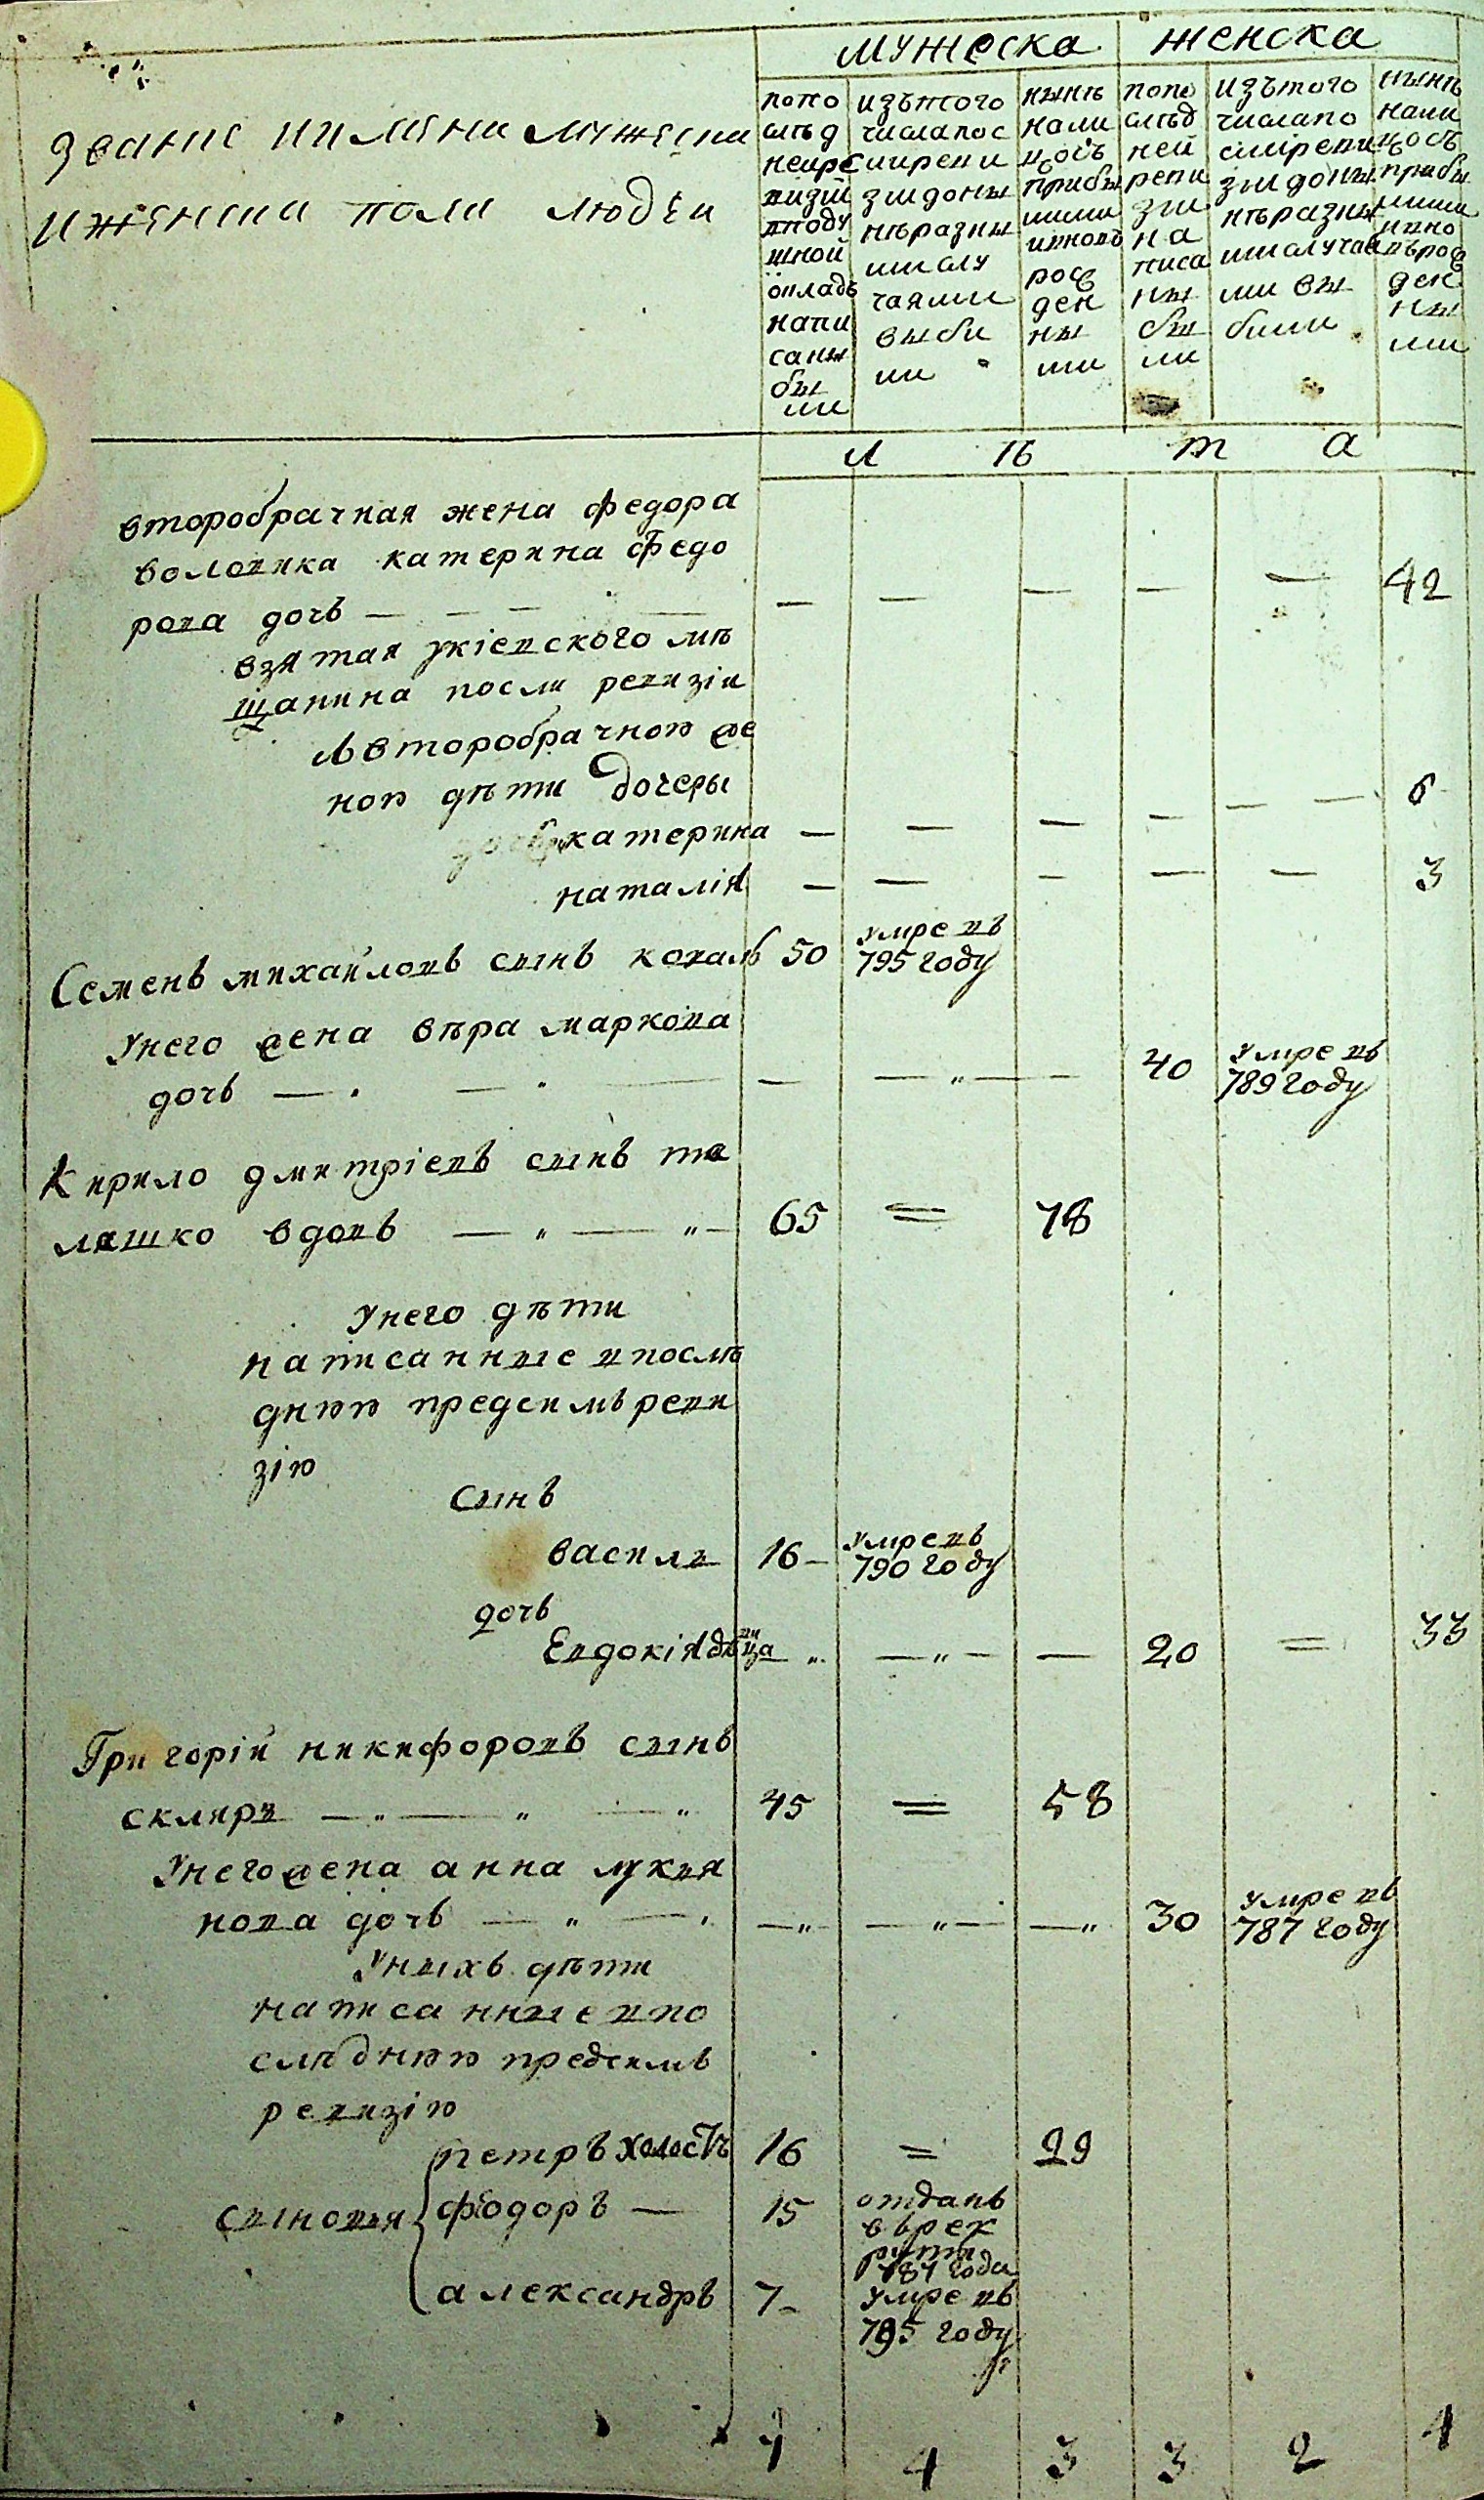 мужеска женска
званіе иимяна мужеска
ижѣнска пола людѣи
попо
слѣд
неире
визіи
вподу
шной
окладъ
напи
саны
бы
ли
изътого
числапос
лиревии
зіидоны
нѣразны
мислу
чаями
выбы
ли
нынѣ
нали
цость
прибы
лими
ивновъ
рож
ден
ны
ми
попо
слѣд
ней
реви
зіи
на
писа
ны
бы
ли
изътого
числапо
слѣреви
зіидоны
нѣразны
мислучая
ми вы
были
нынѣ
нали
цость
прибы
лими
ивно
върож
ден
ны
ми
л ѣ т а
второбрачная жена федора
воловика катерина федо
рова дочь — — — — — — — — — 42
взятая укіевского мѣ
щанина посли ревизіи
Ывторобрачной же
ной дѣти дочеры
катерина — — — — — — 6
наталія — — — — — 3
Семенъ михайловъ сынъ коваль 50 умревъ
795 году
Унего жена вѣра маркова
дочь — — — — — „ — 40 умревъ
789 году
Кирило дмитріевъ сынъ те
ляшко вдовъ — „ — „ — 65 = 78
Унего дѣти
написанные впослѣ
днюю предсимъ реви
зію
Сынъ
василь 16 — умревъ
790 году
дочь
Евдокія двица „ — „ — — 20 = 33
Григорій никифоровъ сынъ
скляръ — „ — „ — „ 45 = 58
Унегожена анна лукья
нова дочь — „ — „ — „ — „ — — „ 30 умревъ
787 году
Унихъ дѣти
написанные впо
слѣднюю предсимъ
ревизію
петръ холостъ 16 = 29
Сыновья федоръ — 15 отданъ
въ рек
рути
787 года
александръ 7 — умревъ
795 году
7 4 3 3 2 4